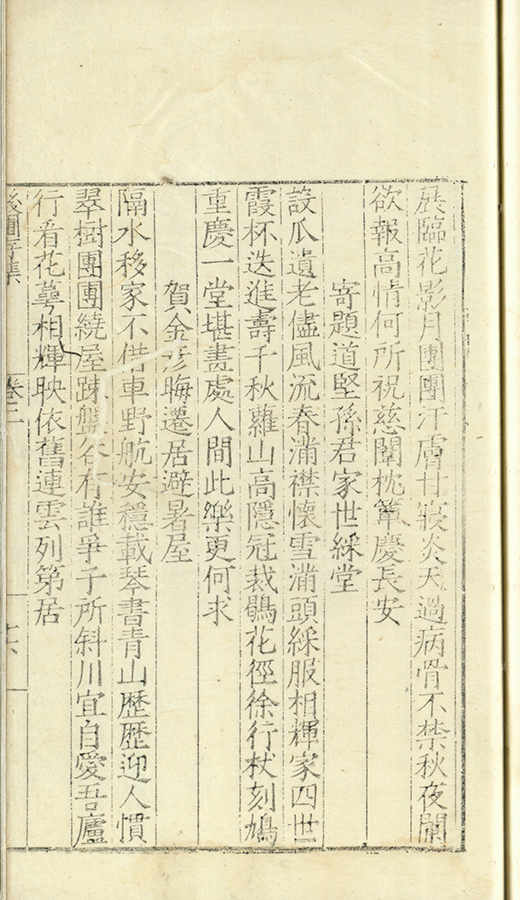 展臨花影月團團汗膚甘寢炎天過病骨不禁秋夜闌
欲報高情何所祝慈闈枕簟慶長安
寄題道堅孫君家世綵堂
設瓜遺老儘風流春滿襟懷雪滿頭綵服相輝家四世
霞杯迭進壽千秋蘿山高隱冠裁鶡花徑徐行杖刻鳩
重慶一堂堪畫處人間此樂更何求
賀金彥晦遷居避暑屋
隔水移家不借車野航安穩載琴書青山歷歷迎人慣
翠樹團團繞屋踈盤谷有誰爭子所斜川宜自愛吾廬
行看花萼相輝映依舊連雲列第居
後圃存集
卷二